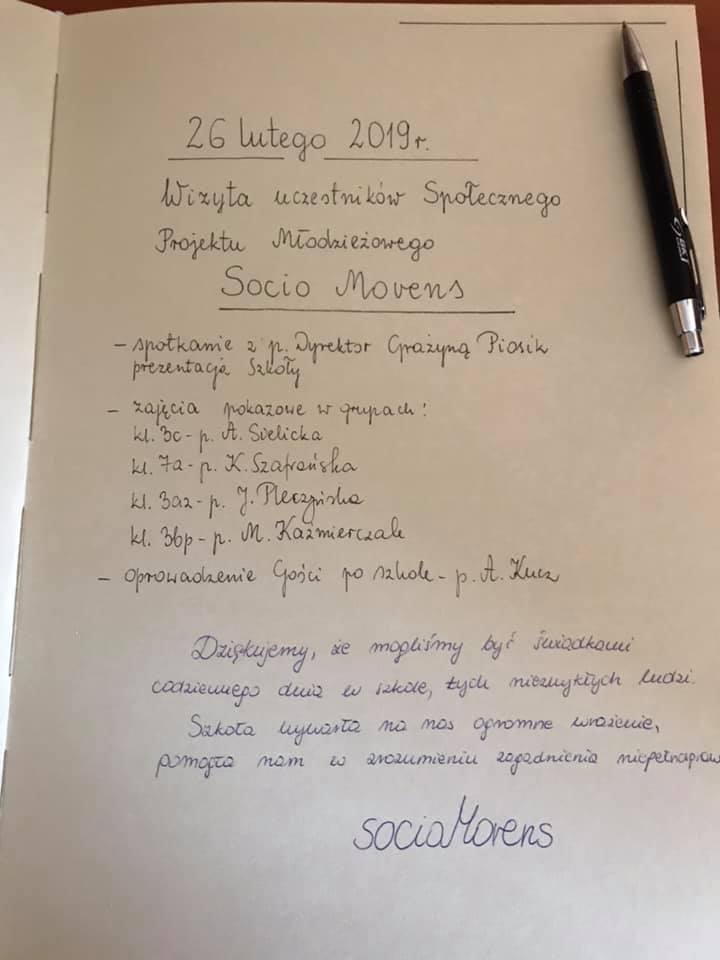 26 lutego 2019 r.
Wizyta uczestników Społecznego
Projektu Młodzieżowego
Socio Movens
- spotkanie z p. Dyrektor Grażyną Piosik
prezentacja Szkoły
- zajęcia pokazowe w grupach:
kl. 3c - p. A. Sielicka
kl. 7a - p. K. Szafrańska
kl. 3az - p. J. Pleczyńska
kl. 3bp - p. M. Kaźmierczak
- oprowadzenie Gości po szkole - p. A. Kucz
Dziękujemy, że mogliśmy być świadkami
codziennego dnia w szkole, tych niezwykłych ludzi.
Szkoła wywarła na nas ogromne wrażenie,
pomogła nam w zrozumieniu zagadnienia niepełnospraw
socioMovens